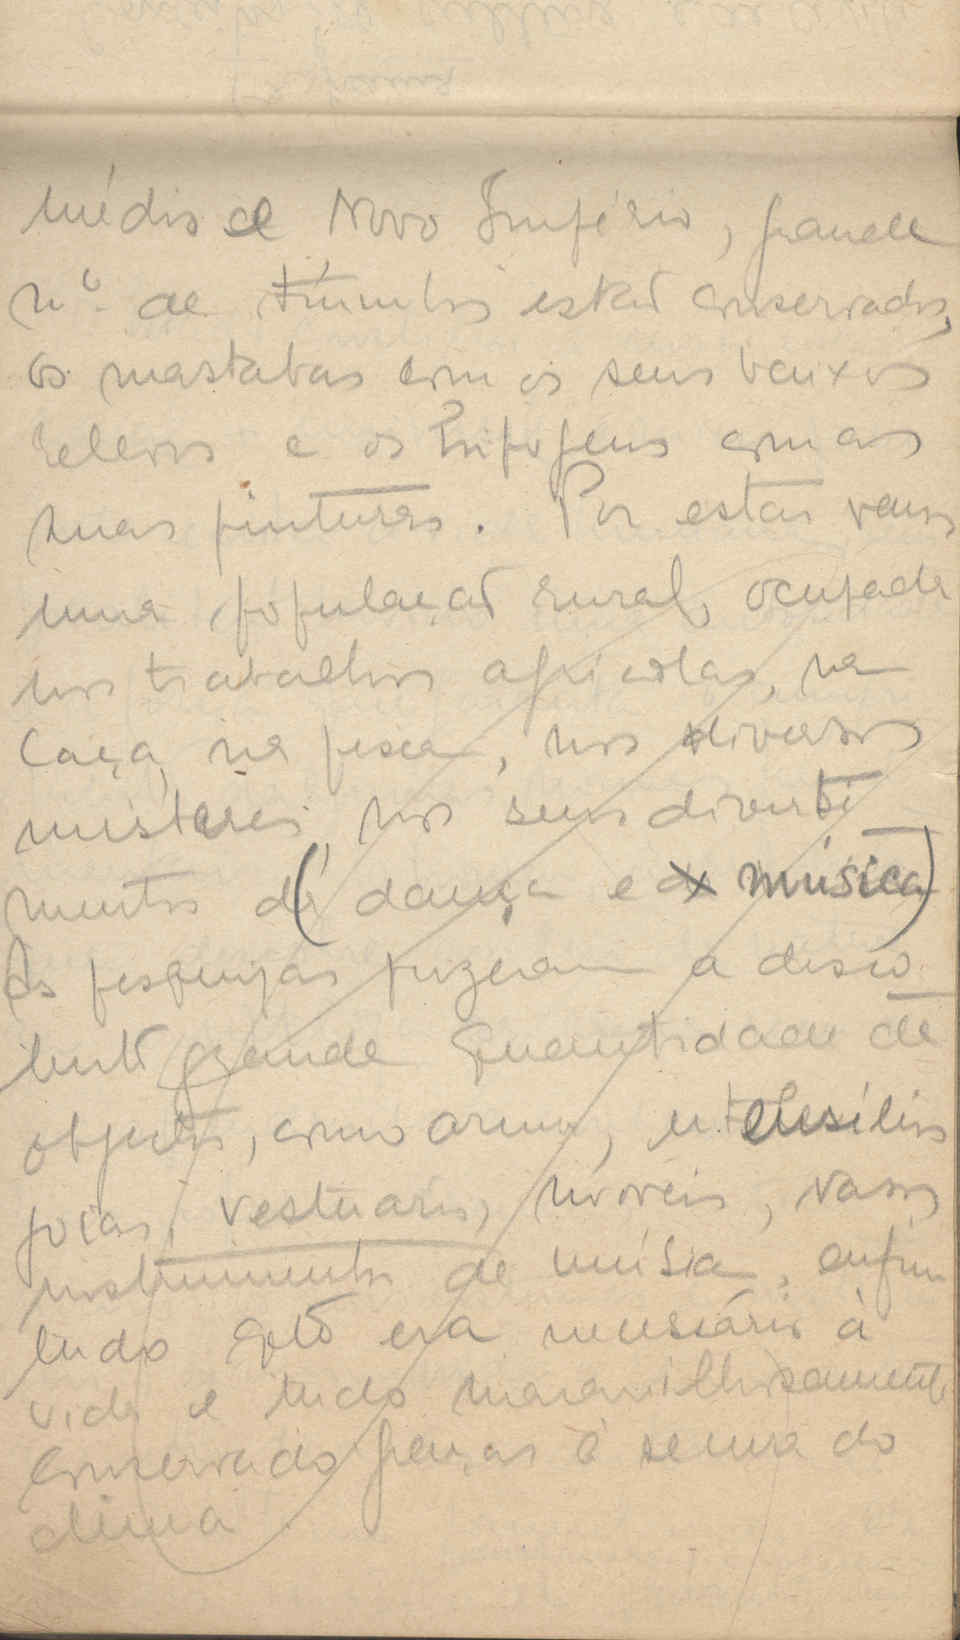 médio e Novo Império, grande
nº. de túmulos estão conservados,
os mastabas com os seus baixos
relevos e os hipogeus com as
suas pinturas. Por estas vemos
uma população rural, ocupada
nos trabalhos agrícolas, na
caça, na pesca, nos diversos
misteres, nos seus diverti
mentos de (dança e música)
As pesquizas puzeram a desco
berto grande quantidade de
objectos, como armas, utensílios
joias, vestuario, moveis, vasos
instrumentos de música, enfim
tudo qto era necessário à
vida e tudo maravilhosamente
conservado graças à secura do
clima